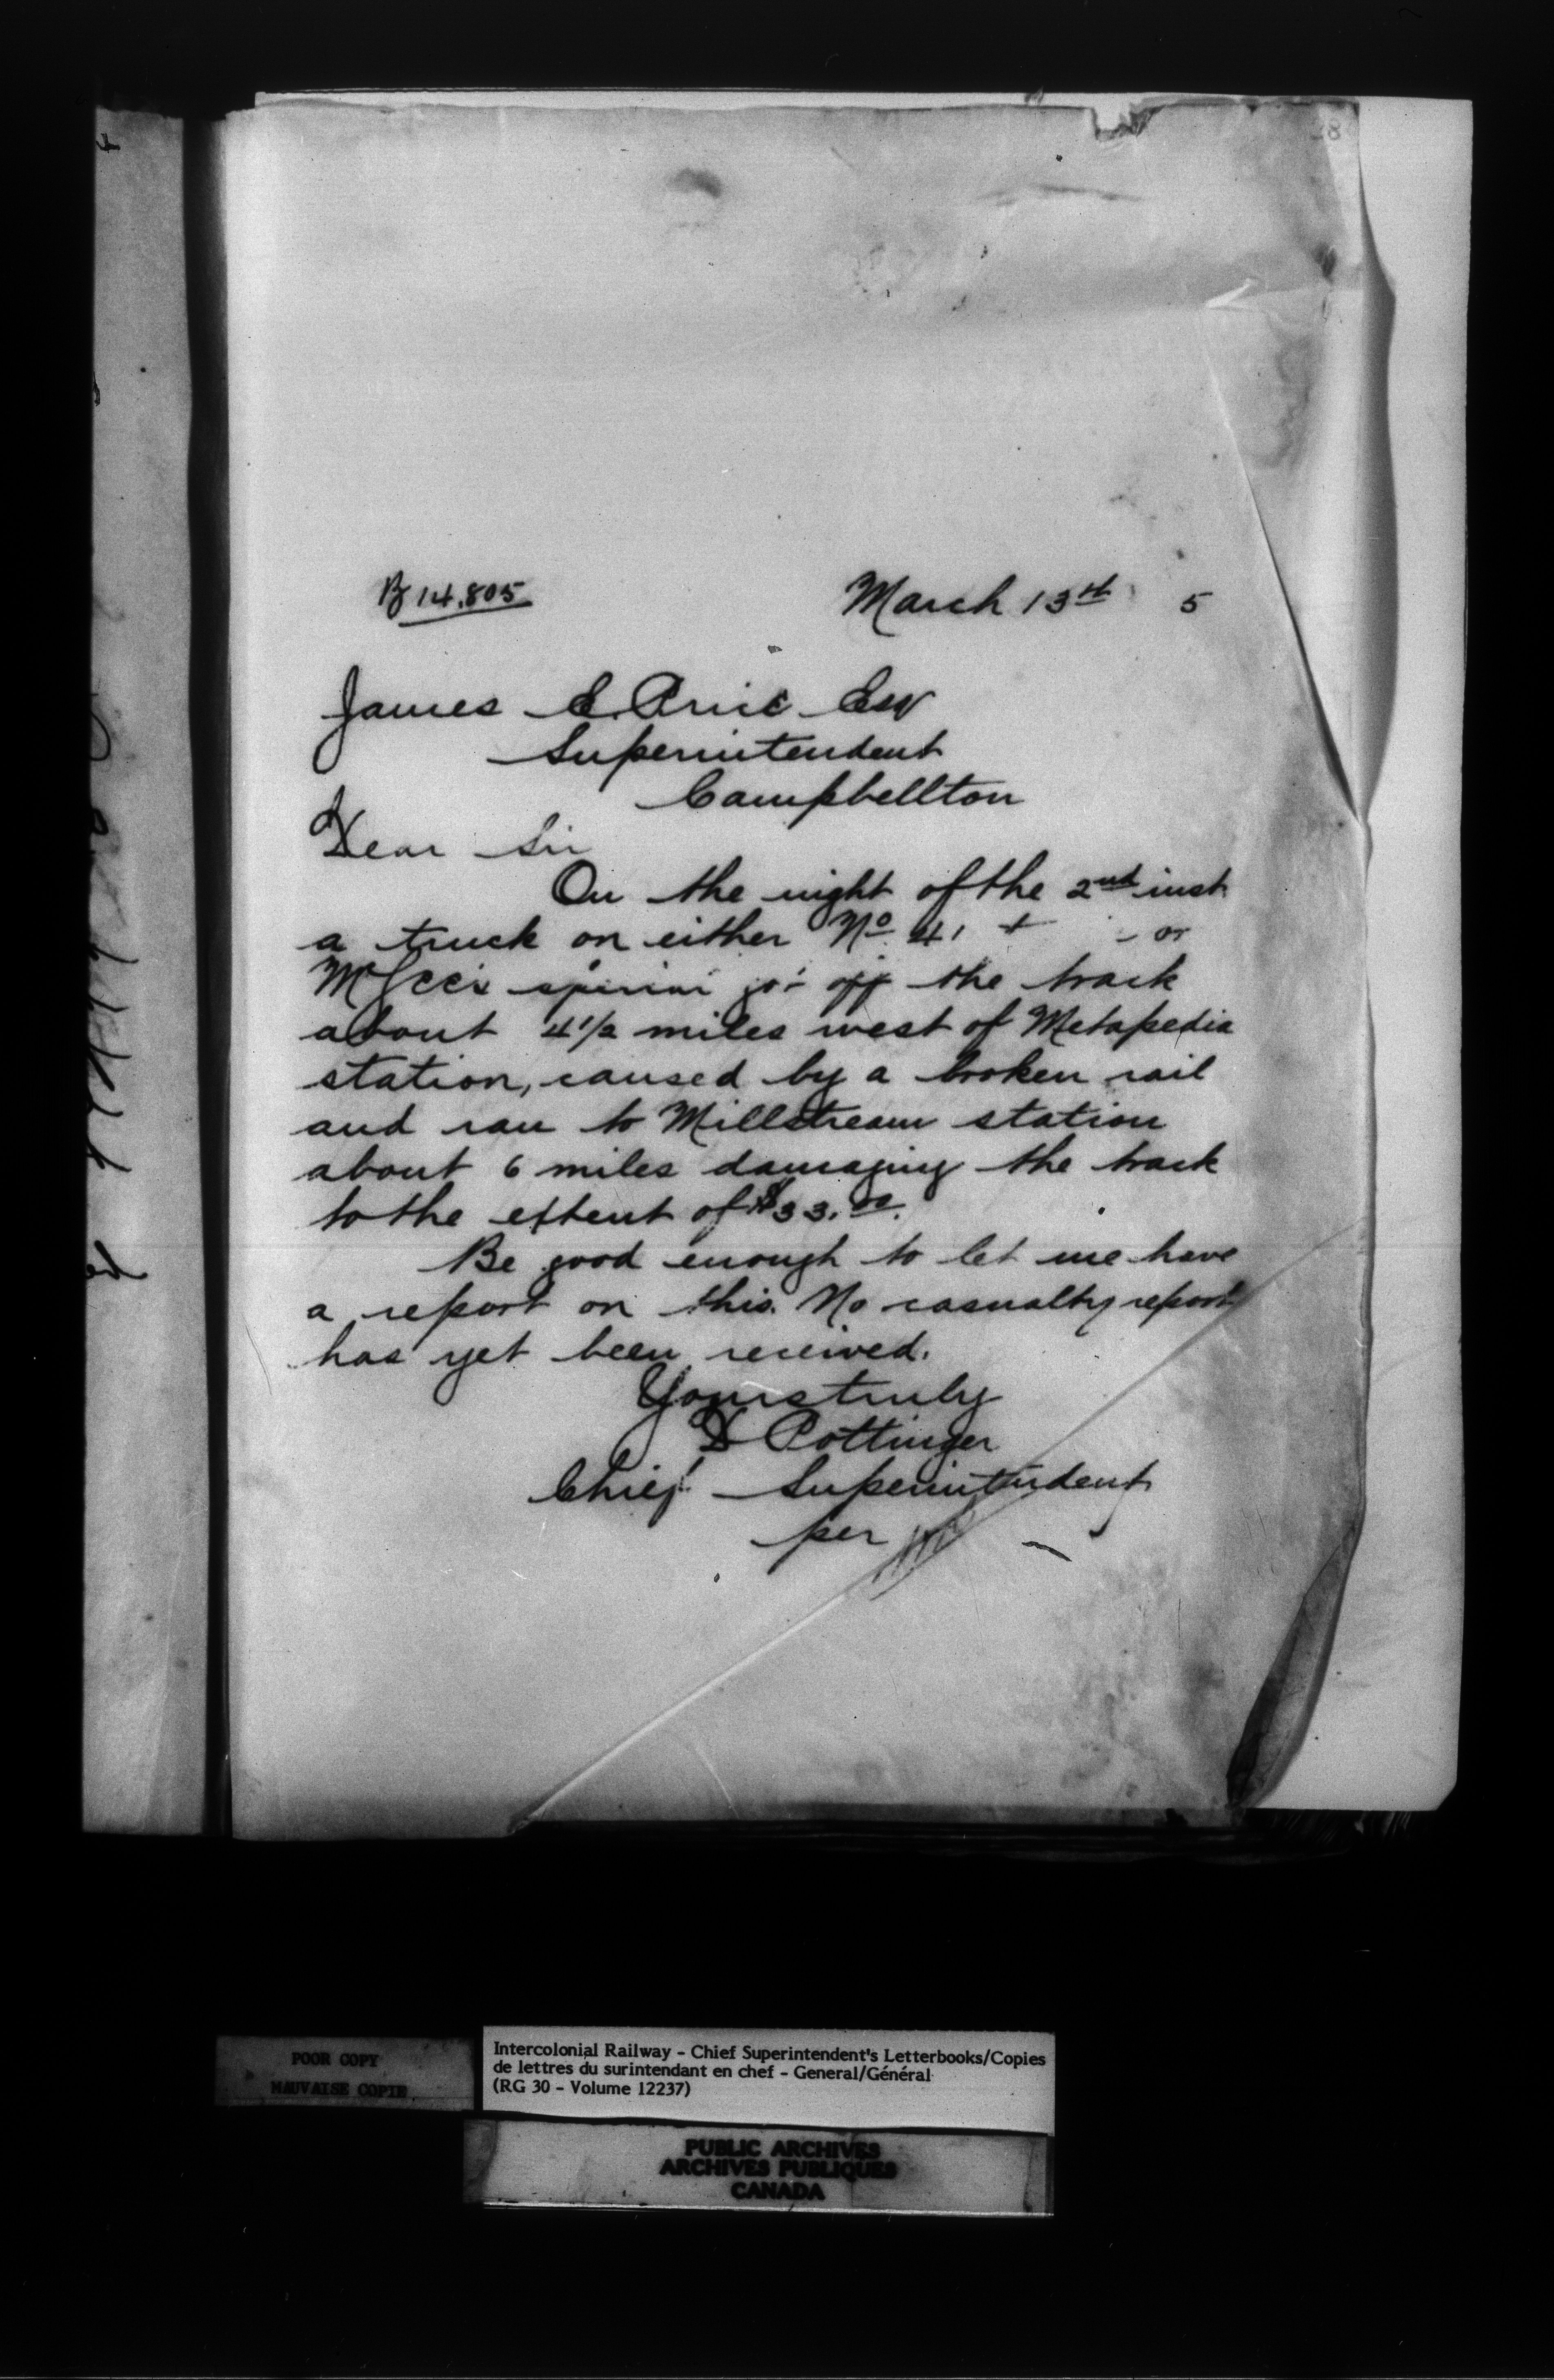 38
B 14.805
March 13th 5
James E. Price Esq
Superintendent
Campbellton
Dear Sir
On the night of the 2nd inst
a truck on either No 41 or
McGee's special got off the track
about 4 1/2 miles west of Metapedia
station, caused by a broken rail
and ran to Millstream station
about 6 miles damaging the track
to the extent of $33.00.
Be good enough to let me have
a report on this. No casualty report
has yet been received.
Yours truly
D Pottinger
Chief Superintendent
per
POOR COPY
MAUVAISE COPIE
Intercolonial Railway - Chief Superintendent's Letterbooks/Copies
de lettres du surintendant en chef - General/Général
(RG 30 - Volume 12237)
PUBLIC ARCHIVES
ARCHIVES PUBLIQUES
CANADA